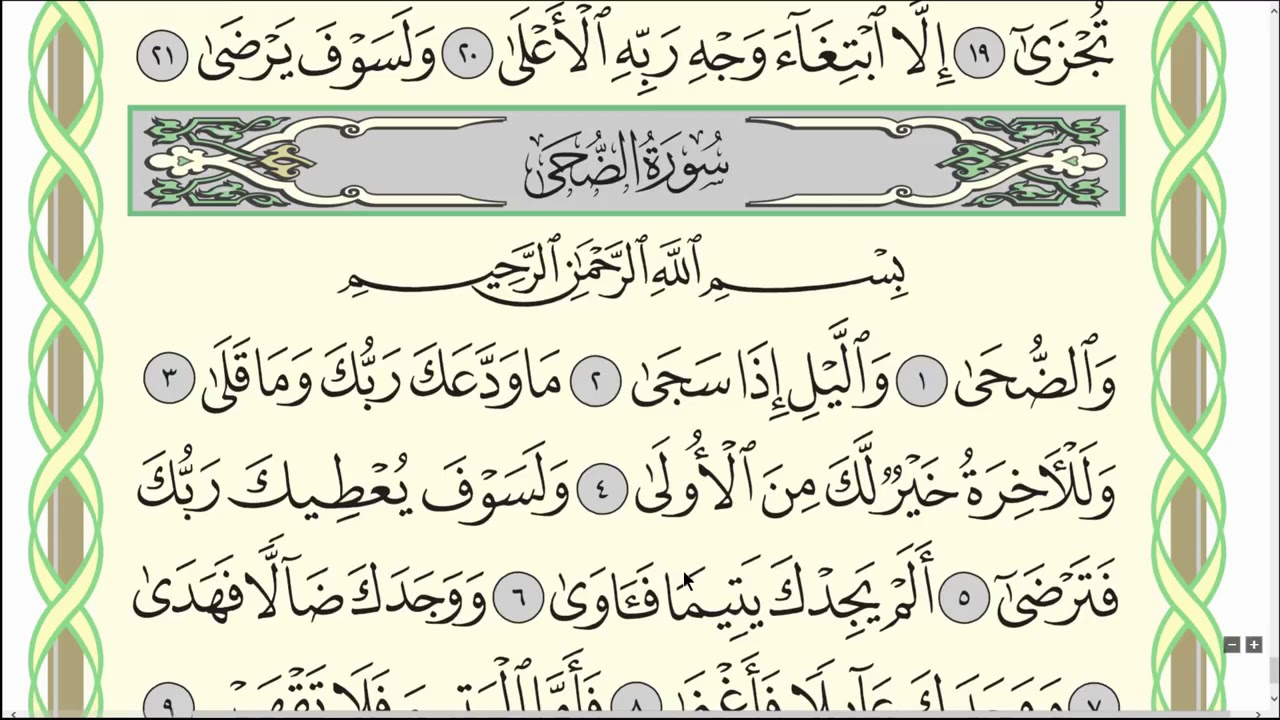 تُجْزَىٰٓ ١٩ إِلَّا ٱبْتِغَآءَ وَجْهِ رَبِّهِ ٱلْأَعْلَىٰ ٢٠ وَلَسَوْفَ يَرْضَىٰ ٢١
سُورَةُ الضُّحَىٰ
بِسْمِ ٱللَّهِ ٱلرَّحْمَٰنِ ٱلرَّحِيمِ
وَٱلضُّحَىٰ ١ وَٱلَّيْلِ إِذَا سَجَىٰ ٢ مَا وَدَّعَكَ رَبُّكَ وَمَا قَلَىٰ ٣
وَلَلْـَٔاخِرَةُ خَيْرٌ لَّكَ مِنَ ٱلْأُولَىٰ ٤ وَلَسَوْفَ يُعْطِيكَ رَبُّكَ
فَتَرْضَىٰٓ ٥ أَلَمْ يَجِدْكَ يَتِيمًا فَـَٔاوَىٰ ٦ وَوَجَدَكَ ضَآلًّا فَهَدَىٰ
٧ وَوَجَدَكَ عَآئِلًا فَأَغْنَىٰ ٨ فَأَمَّا ٱلْيَتِيمَ فَلَا تَقْهَرْ ٩